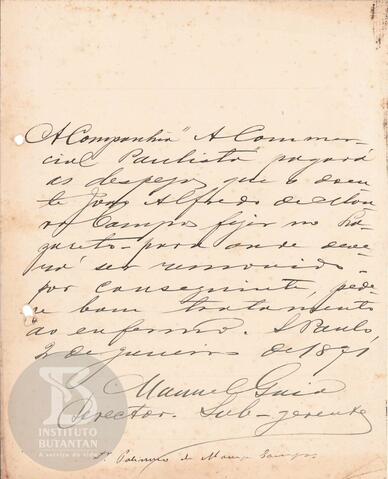 A Companhia "A Commer-
cial Paulista" pagará
as despezas que o doen-
te João Alfredo de
Campos fizer no
para onde deve-
rá ser removido.
por conseguinte, pede-
se bom tratamento
ao enfermo. S. Paulo,
2 de janeiro de 1891
Manuel
Director. Sub-gerente
de Campos
INSTITUTO
BUTANTAN
A serviço da vida